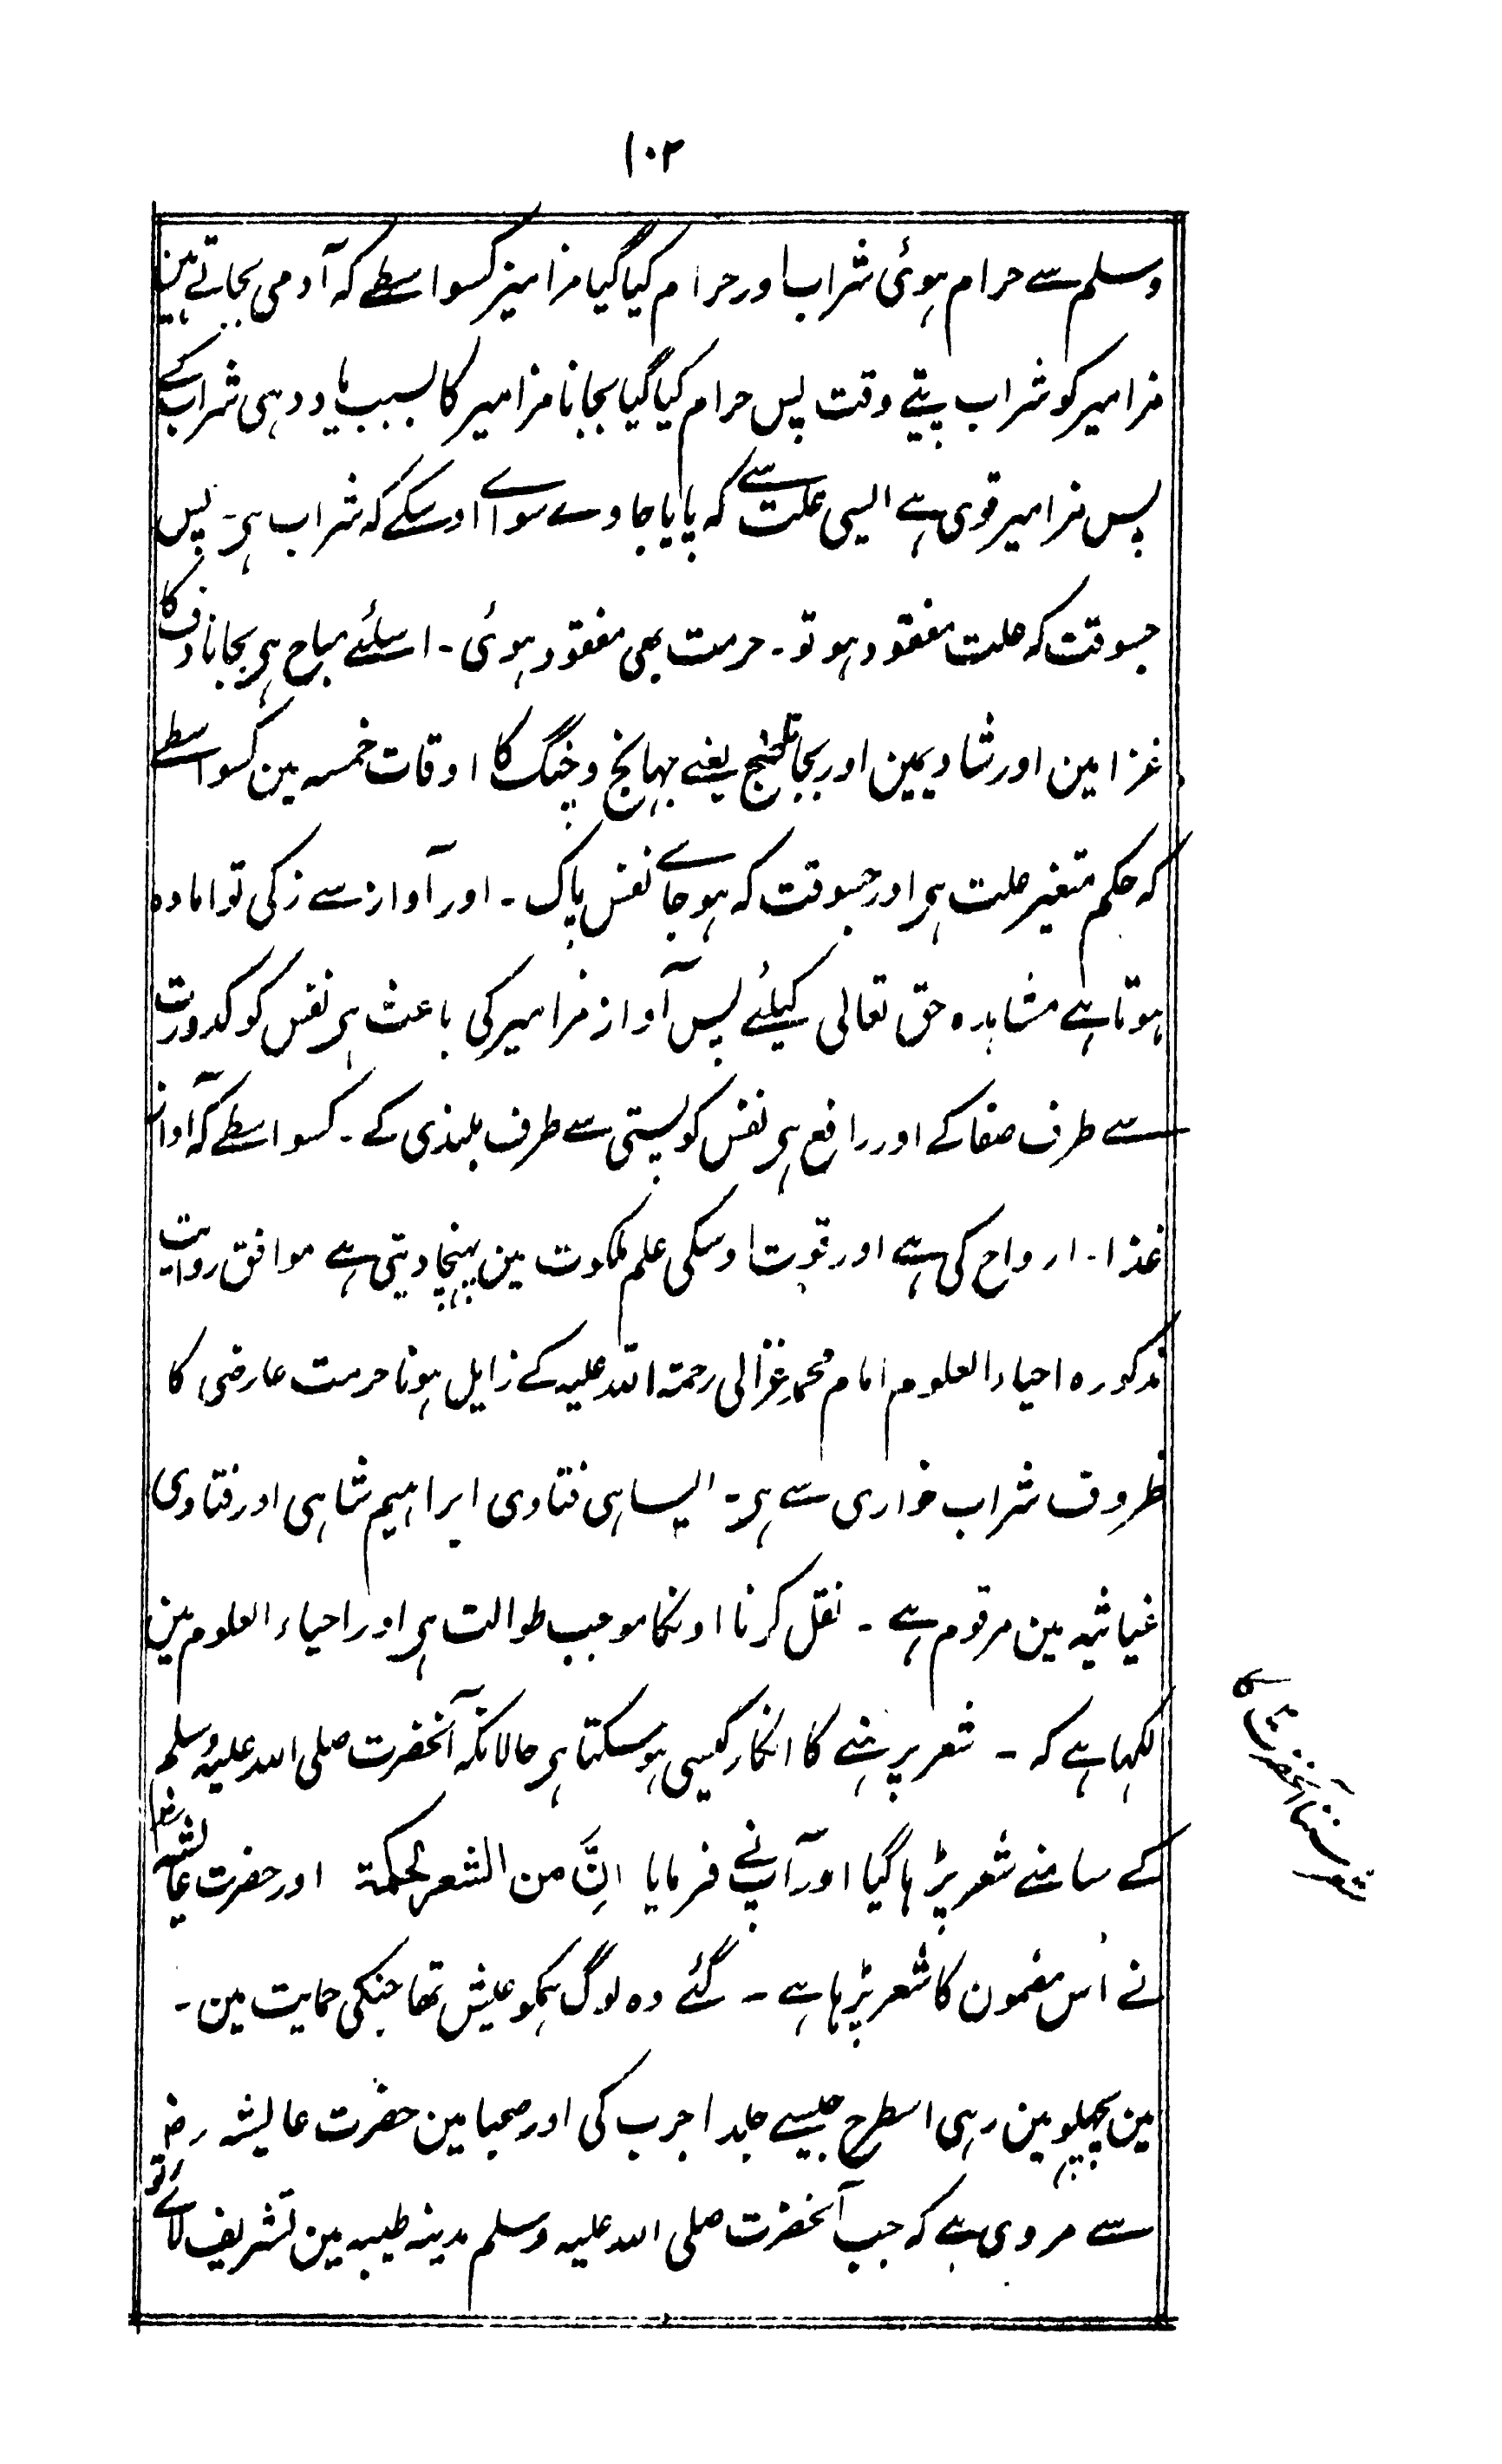 ۱۰۲
وسلم سے حرام ہوئی شراب اور حرام کیا گیا مزامیر کسواسطے کہ آدمی بجاتے ہین
مزامیر کو شراب پیتے وقت پس حرام کیا گیا بجانا مزامیر کا بسبب یاد دہی شراب کے
پس مزامیر قوی ہے ایسی علت سے کہ پایا جاوے سواے اوسکے کہ شراب ہی۔ پس
جسوقت کہ علت مفقود ہو تو۔ حرمت بھی مفقود ہوئی۔ اسلئے مباح ہی بجانا دف کا
غزا مین اور شادیمین اور بجانا صنج یعنے جہانج و چنگ کا اوقات خمسہ مین کسواسطے
کہ حکم متغیر علت ہی اور جسوقت کہ ہو جاے نفس پاک۔ اور آواز سے زکی تو امادہ
ہوتا ہے مشاہدہ حق تعالی کیلئے پس آواز مزامیر کی باعث ہی نفس کو کدورت
سے طرف صفا کے اور رافع ہی نفس کو پستی سے طرف بلندی کے۔ کسواسطے کہ آواز
غذا۔ ارواح کی ہے اور قوت اوسکی علم ملکوت مین پہنچا دیتی ہے موافق روایت
مذکورہ احیاء العلوم امام محمد غزالی رحمۃ اللہ علیہ کے زایل ہونا حرمت عارضی کا
ظروف شراب خواری سے ہی۔ ایسا ہی فتاوی ابراہیم شاہی اور فتاوی
غیاثیہ مین مرقوم ہے۔ نقل کرنا اونکا موجب طوالت ہی اور احیاء العلوم مین
لکہا ہے کہ۔ شعر پرہنے کا انکار کیسی ہو سکتا ہی حالانکہ آنحضرت صلی اللہ علیہ وسلم
کے سامنے شعر پڑہا گیا اور آپنے فرمایا اِنَّ من الشعر لحکمۃ اور حضرت عائشہ رضہ
نے اُس مضمون کا شعر پڑہا ہے۔ گئے وہ لوگ ہمکو عیش تھا جنکی حمایت مین۔
مین پچھلو مین رہی اسطرح جیسے جلد اجرب کی اور صحبا مین حضرت عایشہ رضہ
سے مروی ہے کہ جب آنحضرت صلی اللہ علیہ وسلم مدینہ طیبہ مین تشریف لائے تو
شعر سننا آنحضرت کا